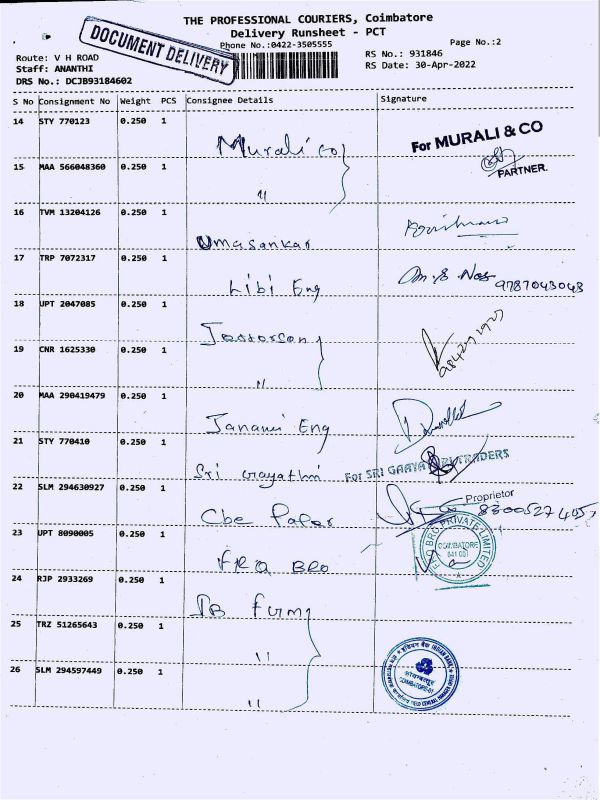 THE PROFESSIONAL COURIERS, Coimbatore
Delivery Runsheet - PCT
Phone No.:0422-3505555
Page No.:2
DOCUMENT DELIVERY
Route: V H ROAD
Staff: ANANTHI
DRS No.: DCJB93184602
RS No.: 931846
RS Date: 30-Apr-2022
S No Consignment No Weight PCS Consignee Details Signature
14 STY 770123 0.250 1 Murali co
For MURALI & CO
PARTNER.
15 MAA 566048360 0.250 1 "
16 TVM 13204126 0.250 1 Umasankar
17 TRP 7072317 0.250 1 Libi Eng
9787043043
18 UPT 2047085 0.250 1
19 CNR 1625330 0.250 1 "
20 MAA 290419479 0.250 1 Eng
21 STY 770410 0.250 1 Sri Gayathri
For SRI GAAYATRI TRADERS
Proprietor
22 SLM 294630927 0.250 1 Cbe
23 UPT 8090005 0.250 1 BRO
BRO PRIVATE LIMITED
COIMBATORE
641 001
24 RJP 2933269 0.250 1
25 TRZ 51265643 0.250 1 "
26 SLM 294597449 0.250 1 "
COIMBATORE-01